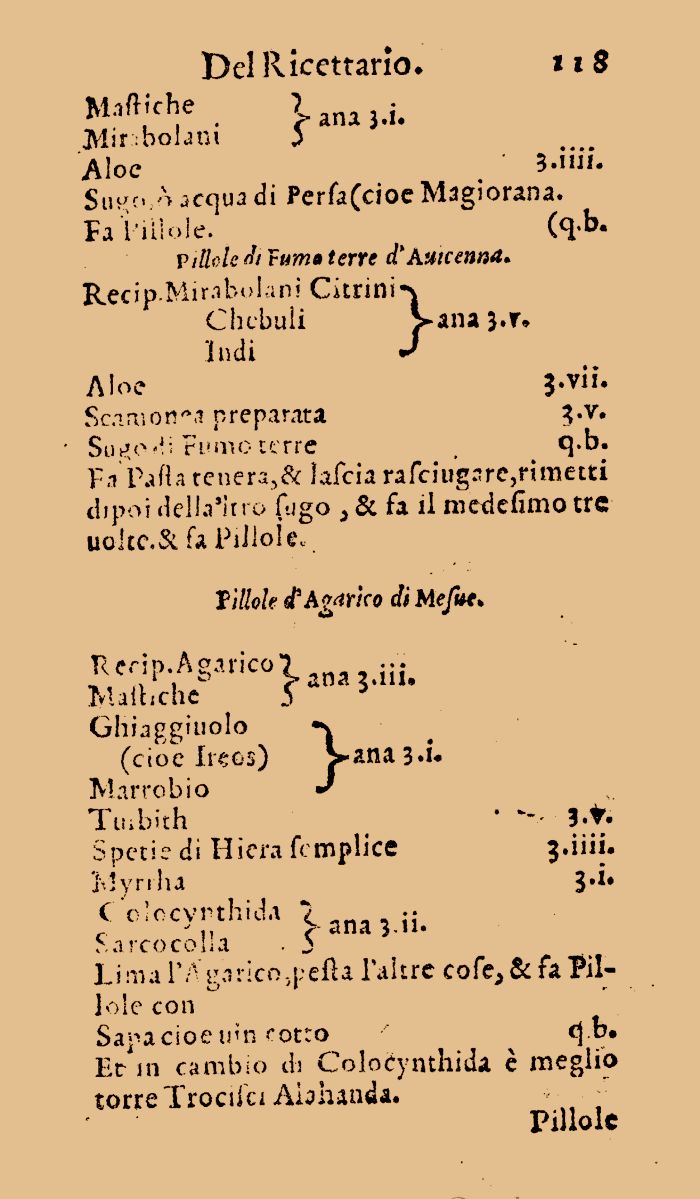 Del Ricettario. 118
Maſtiche
Mirabolani } ana ʒ.i.
Aloe ʒ.iiii.
Sugo, ò acqua di Perſa(cioe Magiorana.
Fa Pillole. (q.b.
Pillole di Fumo terre d'Auicenna.
Recip.Mirabolani Citrini
Chebuli } ana ʒ.v.
Indi
Aloe ʒ.vii.
Scamonea preparata ʒ.v.
Sugo di Fumo terre q.b.
Fa Paſta tenera,& laſcia raſciugare,rimetti
dipoi della'ltro ſugo , & fa il medeſimo tre
uolte.& fa Pillole.
Pillole d'Agarico di Meſue.
Recip.Agarico
Maſtiche } ana ʒ.iii.
Ghiaggiuolo
(cioe Ireos) } ana ʒ.i.
Marrobio
Turbith ʒ.v.
Spetie di Hiera ſemplice ʒ.iiii.
Myrrha ʒ.i.
Colocynthida
Sarcocolla } ana ʒ.ii.
Lima l'Agarico,peſta l'altre coſe, & fa Pil-
lole con
Sapa cioe uin cotto q.b.
Et in cambio di Colocynthida è meglio
torre Trociſci Alahanda.
Pillole